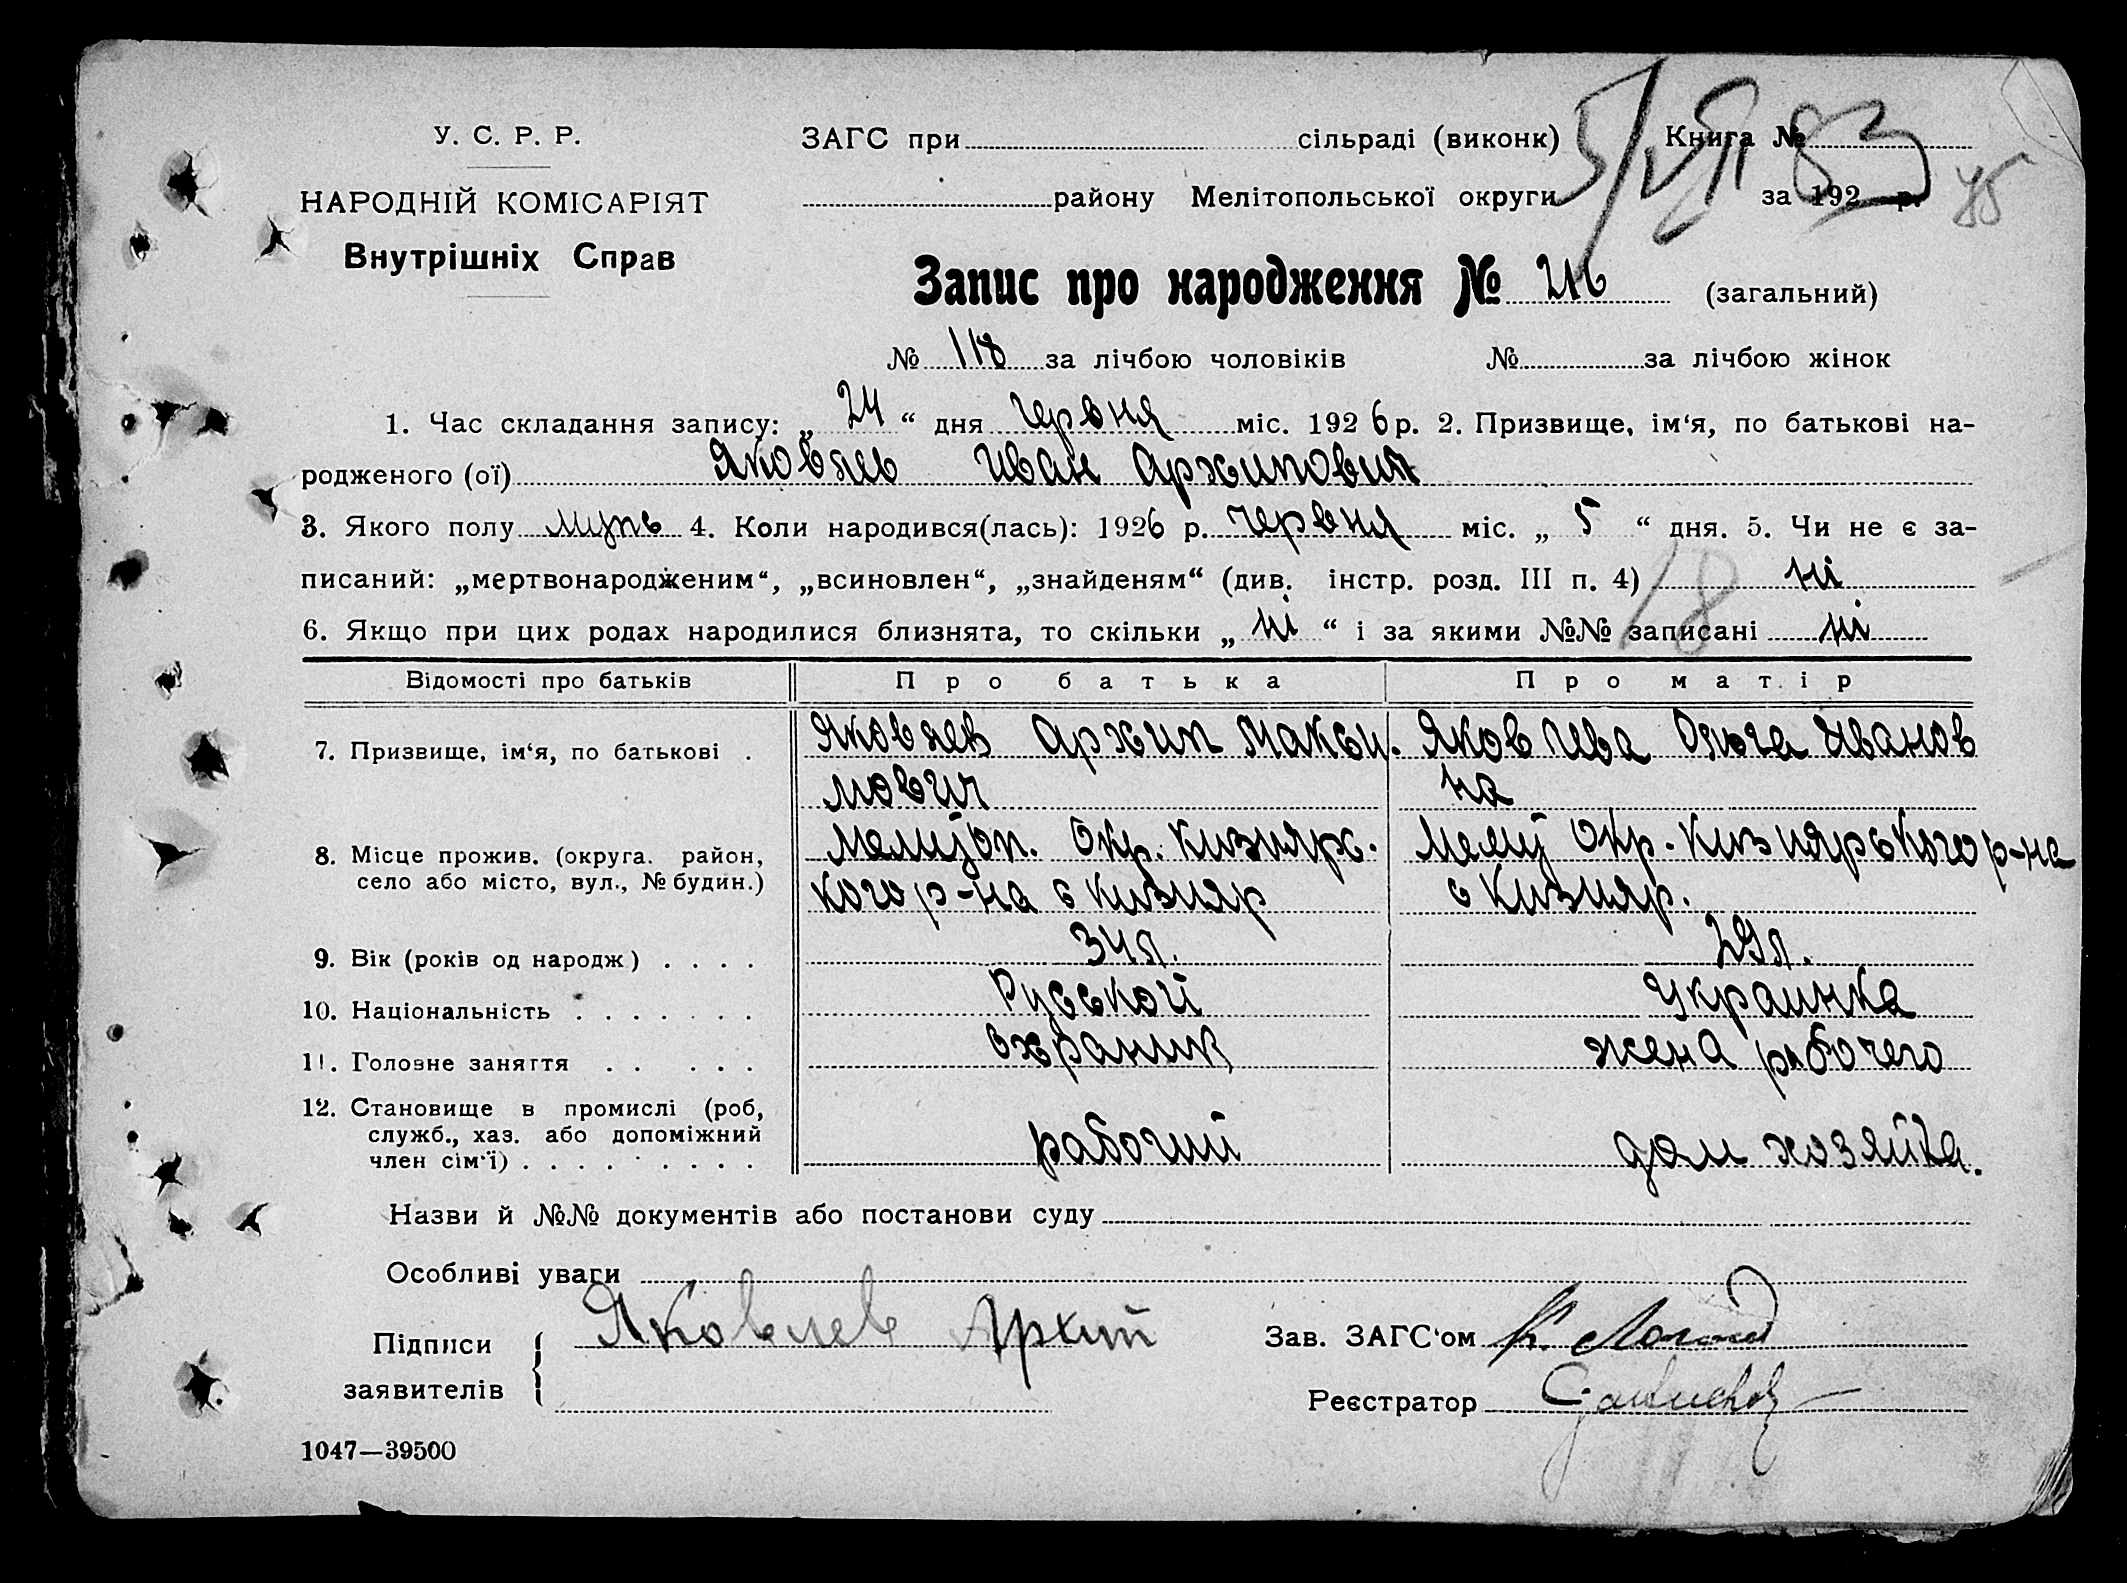 У. С. Р. Р.
НАРОДНІЙ КОМІСАРІЯТ
Внутрішніх Справ
ЗАГС при сільраді (виконк) Книга № 83
району Мелітопольської округи за 192 р. 45
5/VII
Запис про народження № 216 (загальний)
№ 118 за лічбою чоловіків № за лічбою жінок
1. Час складання запису: „ 24 “ дня червня міс. 1926 р. 2. Призвище, ім‘я, по батькові на-
родженого (ої) Яковлев Иван Архипович
3. Якого полу муж 4. Коли народився(лась): 1926 р. червня міс. „ 5 “ дня. 5. Чи не є за-
писаний: „мертвонародженим“, „всиновлен“, „знайденям“ (див. інстр. розд. III п. 4) ні
18
6. Якщо при цих родах народилися близнята, то скільки „ ні “ і за якими №№ записані ні
Відомості про батьків Про батька Про матір
7. Призвище, ім‘я, по батькові . Яковлев Архип Макси- Яковлева Ольга Иванов
мович на
8. Місце прожив. (округа. район, Мелитоп. Окр. Кизиярс. Мелит Окр. Кизиярського р-на
село або місто, вул., № будин.) кого р-на с Кизияр с Кизияр.
9. Вік (років од народж) . . . . 34 л. 29 л.
10. Національність . . . . . . . Руськой Украинка
11. Головне заняття . . . . . охраник жена рабочего
12. Становище в промислі (роб,
служб., хаз. або допоміжний рабочий дом хозяйка.
член сім‘ї) . . . . . . . . .
Назви й №№ документів або постанови суду
Особливі уваги
Підписи Яковлев Архип Зав. ЗАГС‘ом
заявителів Реєстратор
1047—39500